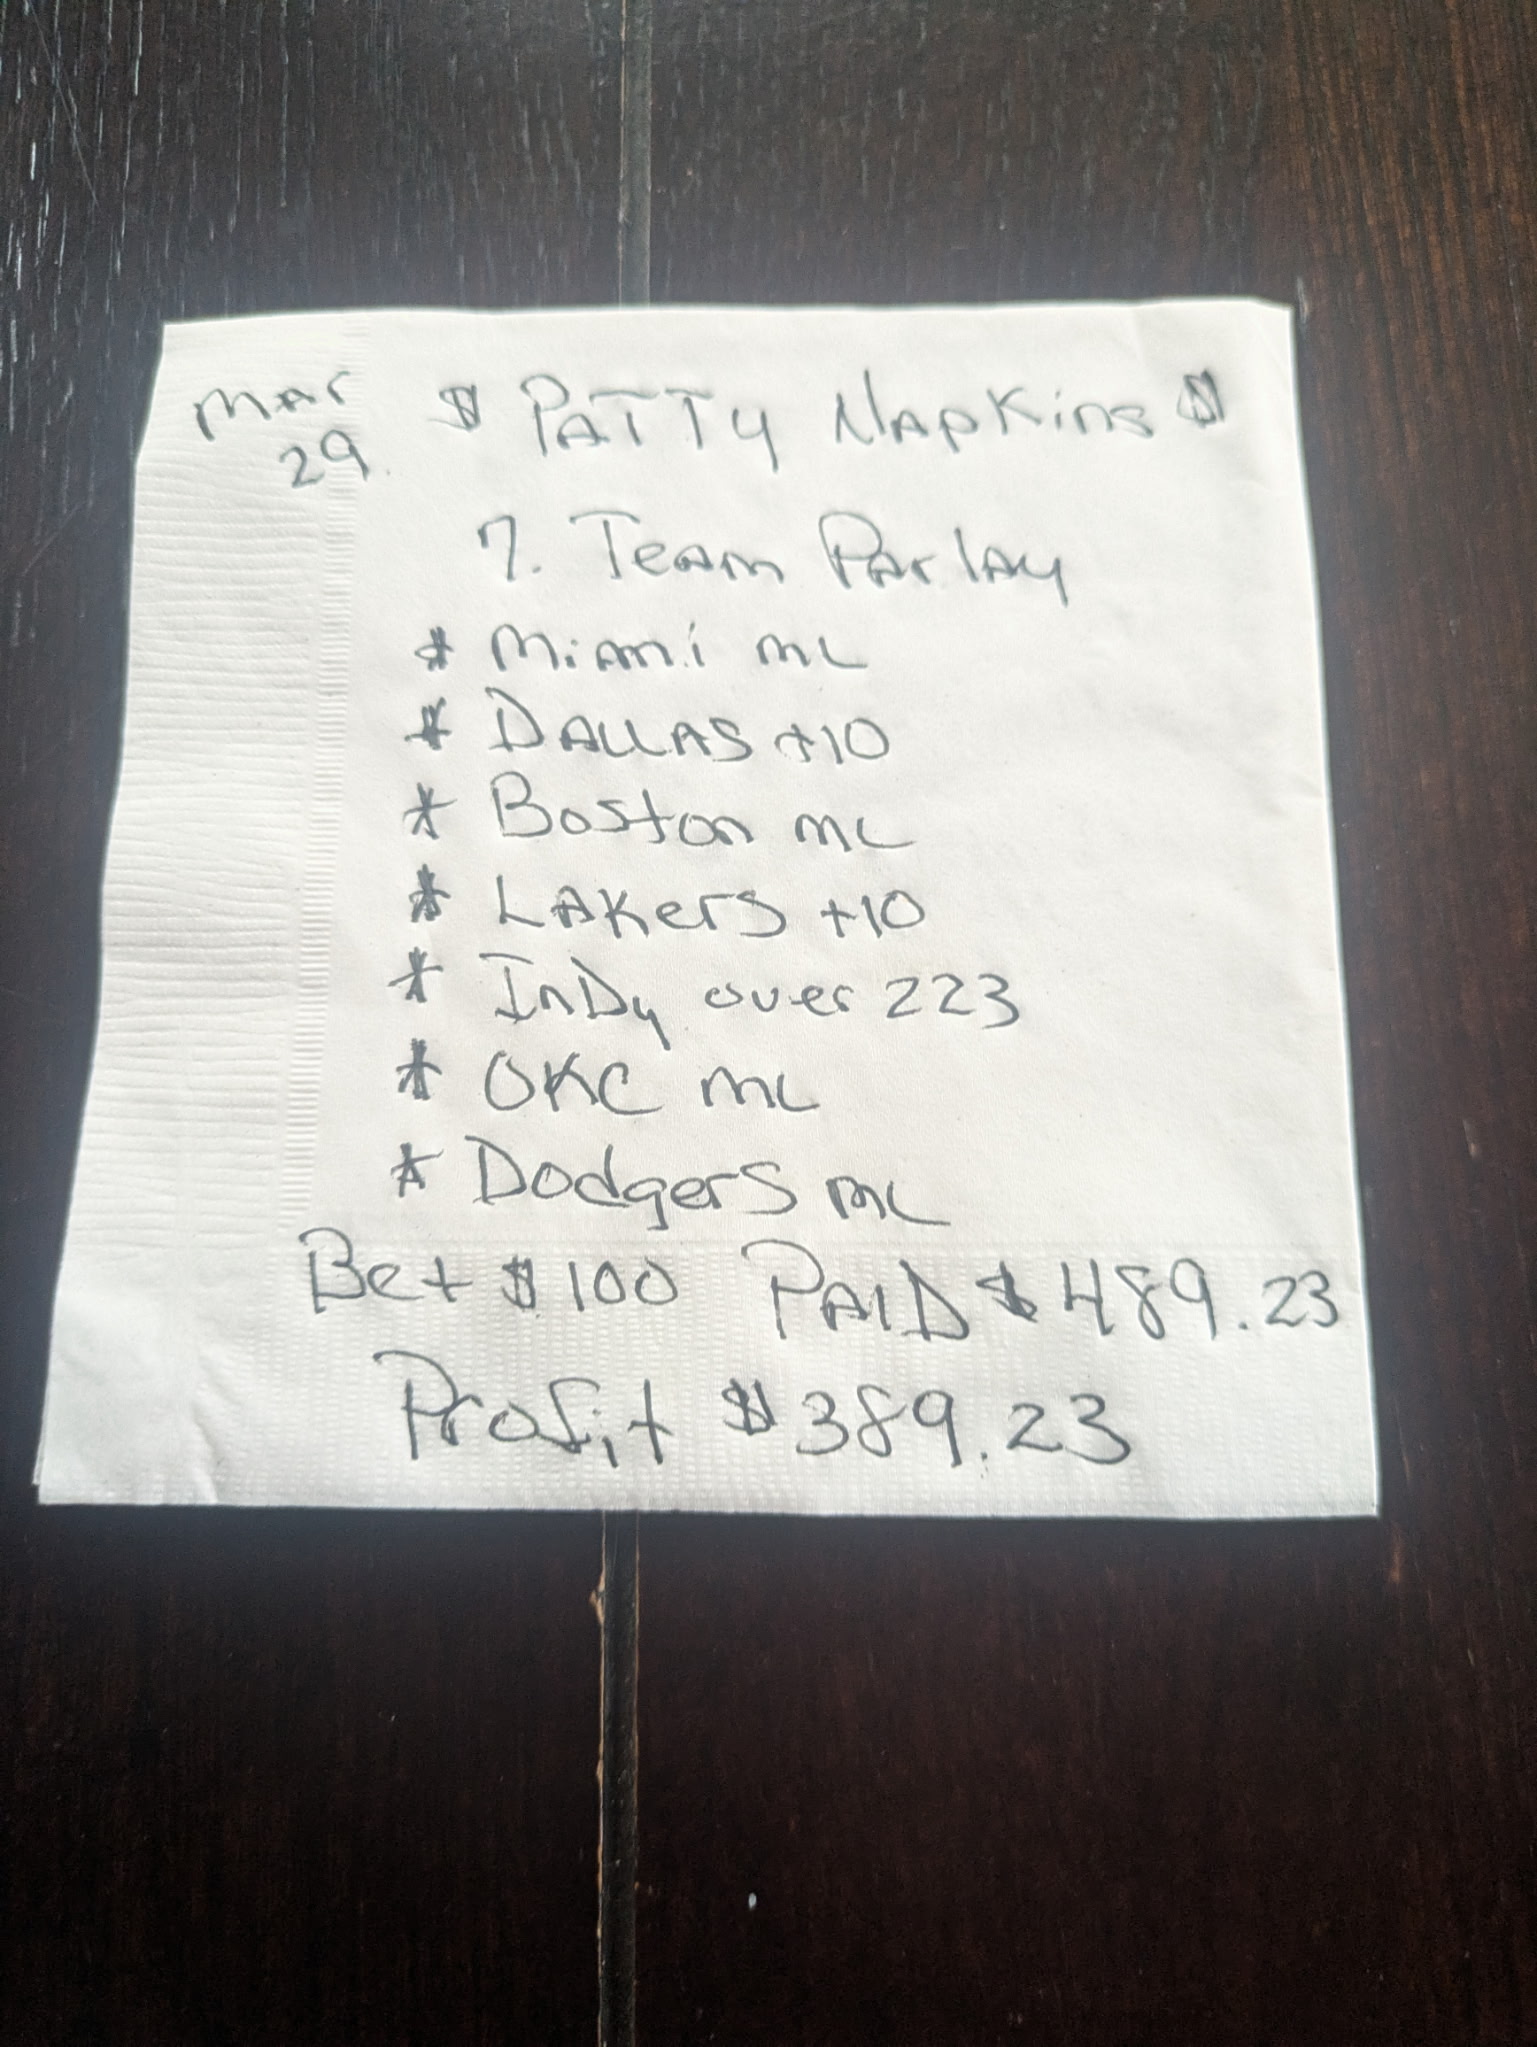 Mar $ PATTy NApKins $
29.
7. Team Parlay
* Miami mL
* DALLAS +10
* Boston mL
* LAKerS +10
* InDy over 223
* OKC mL
* DodgerS mL
Bet $100 PAID $489.23
Profit $389.23